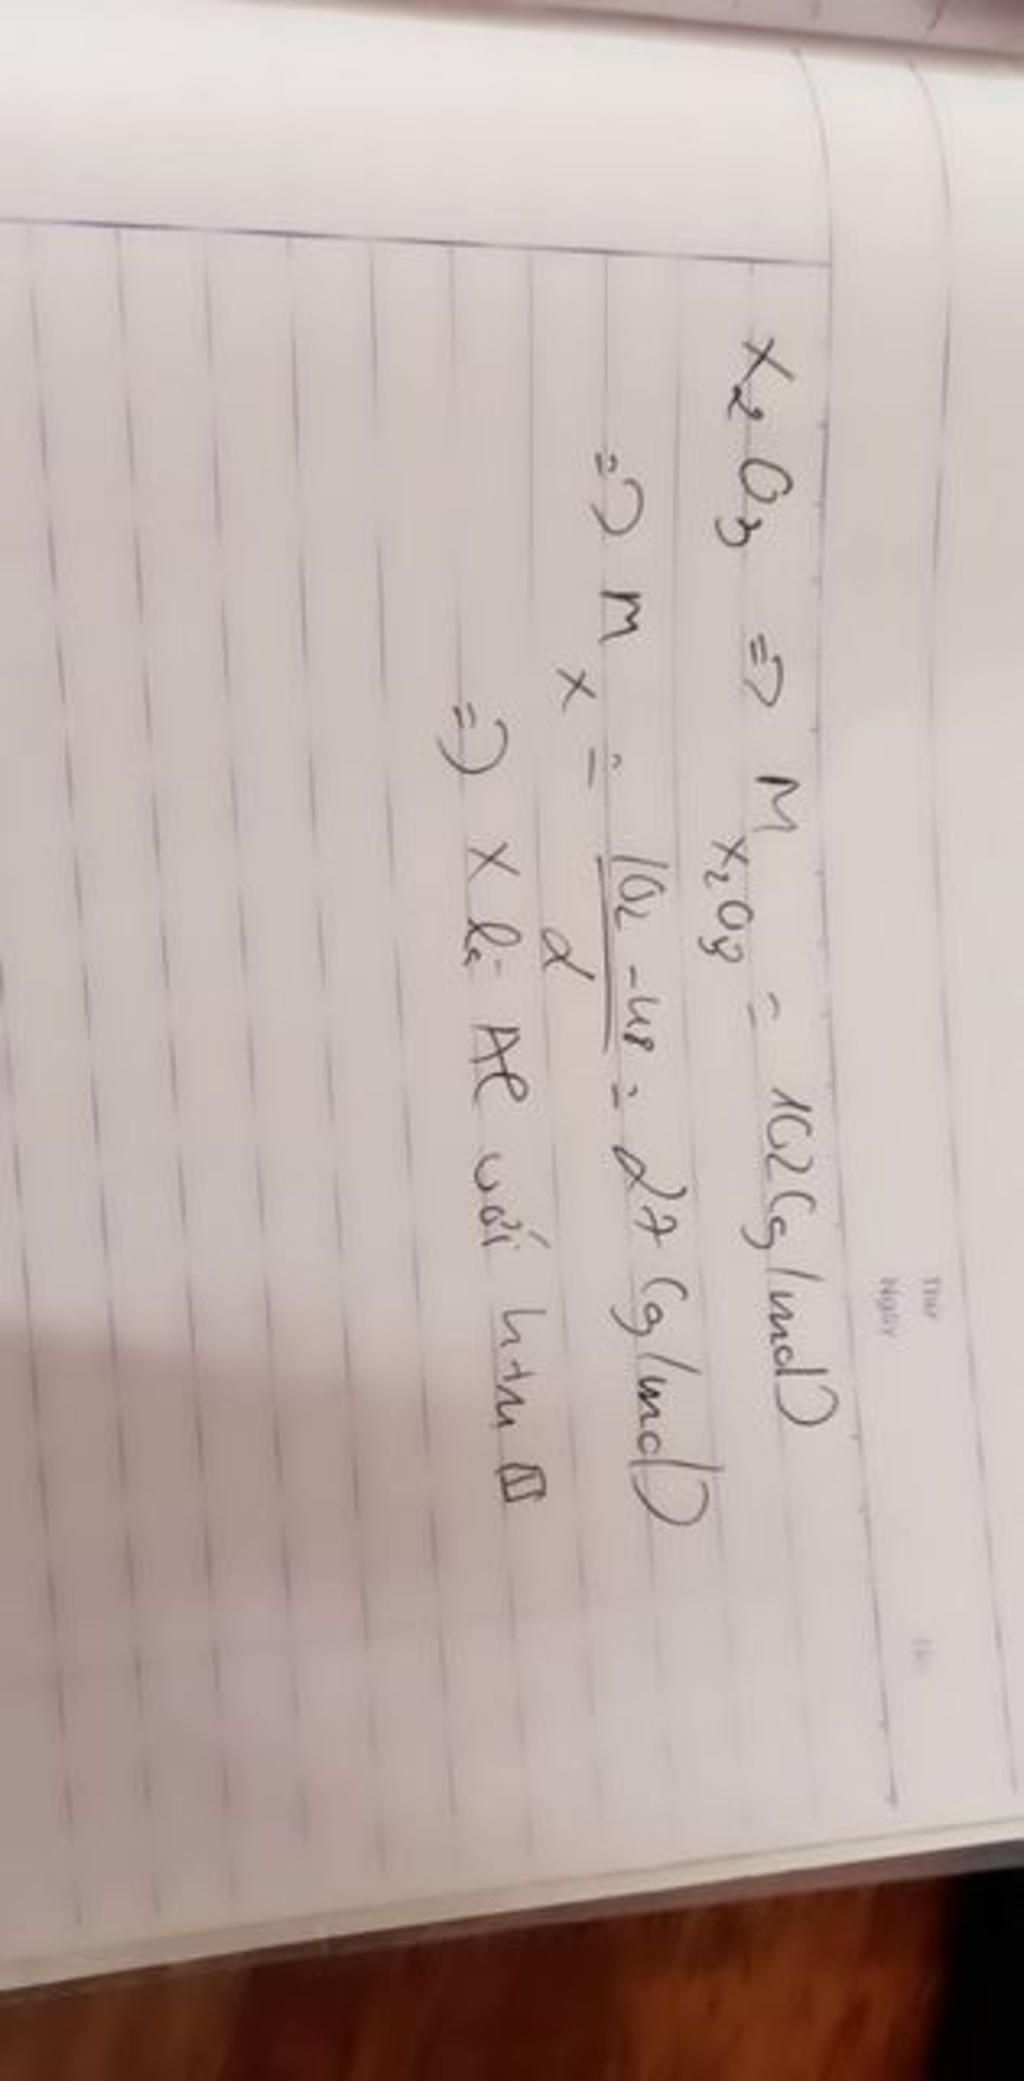 Thứ
Ngày
X₂O₃ => M X₂O₃ = 102 (g/mol)
=> M X = 102 - 48 / 2 = 27 (g/mol)
=> X là Al với htrị III